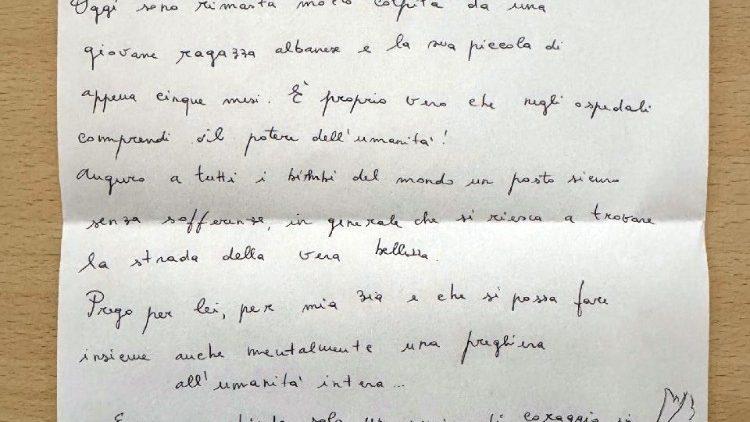 Oggi sono rimasta molto colpita da una
giovane ragazza albanese e la sua piccola di
appena cinque mesi. È proprio vero che negli ospedali
comprendi il potere dell'umanità!
Auguro a tutti i bimbi del mondo un posto sicuro
senza sofferenze, in generale che si riesca a trovare
la strada della vera bellezza.
Prego per lei, per mia zia e che si possa fare
insieme anche mentalmente una preghiera
all'umanità intera...
solo coraggio